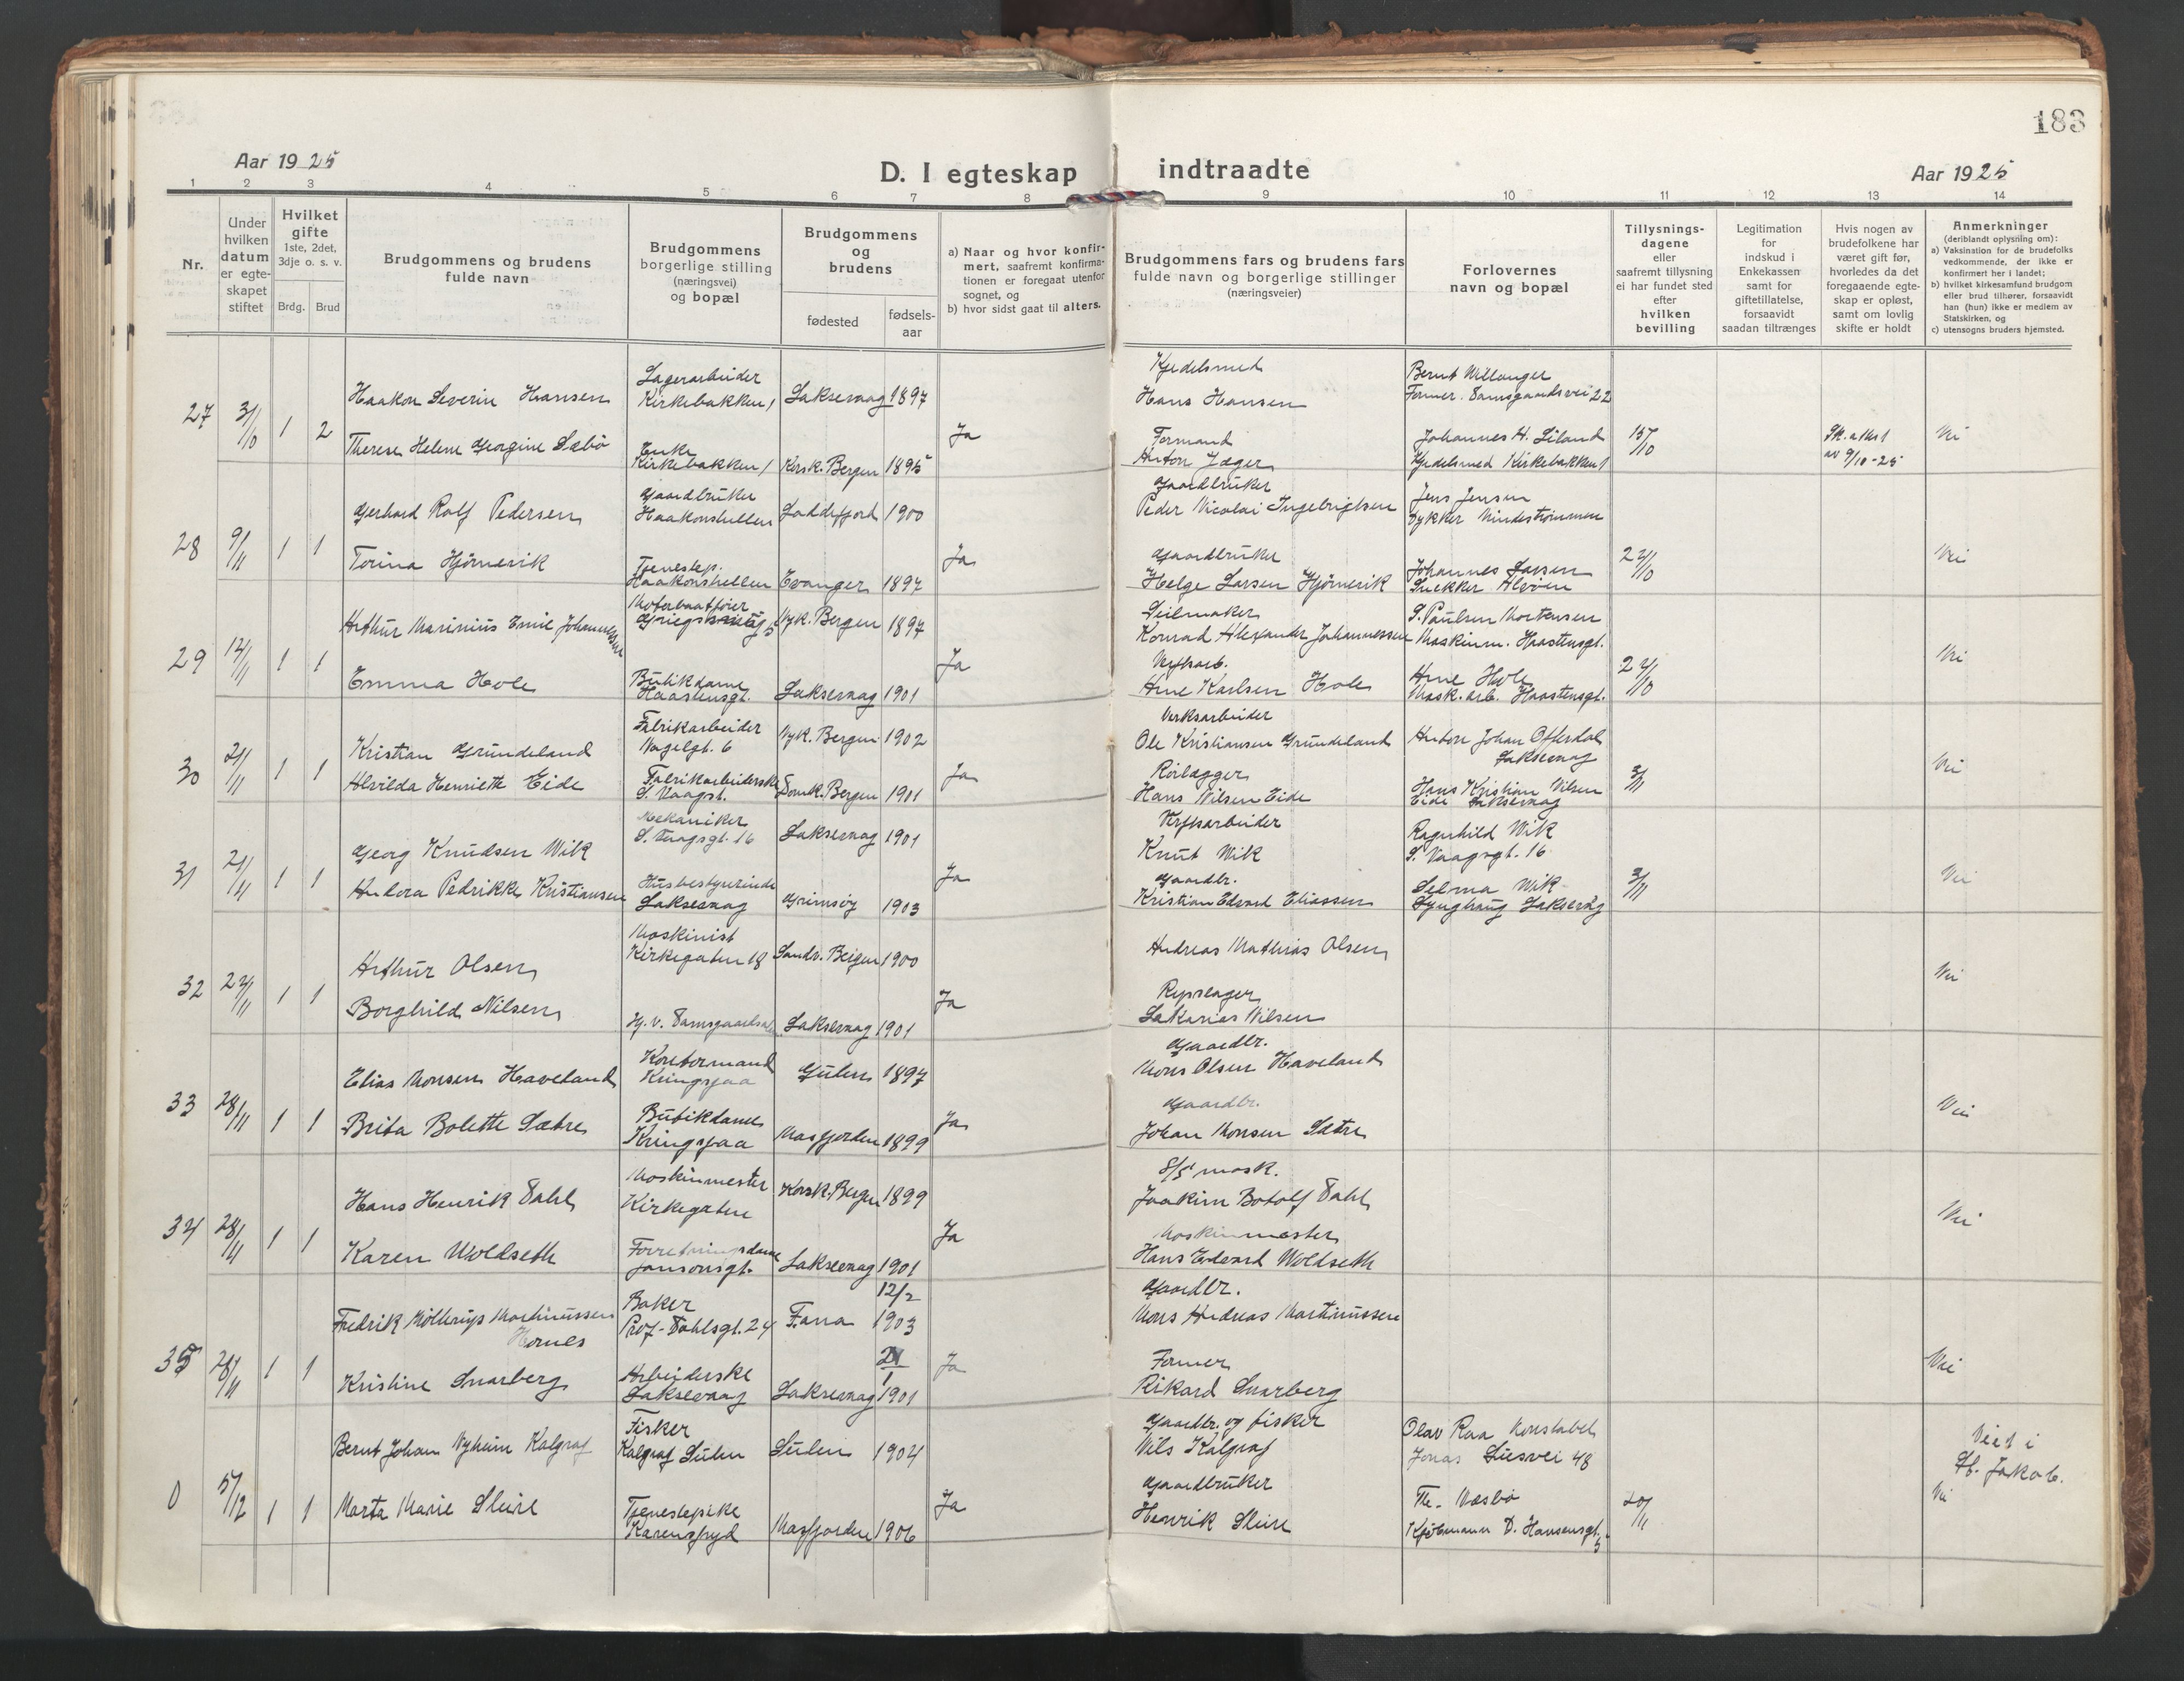 183
Aar 1925
D. I egteskap indtraadte
Aar 1925
1 2 3 4 5 6 7 8 9 10 11 12 13 14
Nr.
Under hvilken datum er egte-skapet stiftet
Hvilket gifte
1ste, 2det, 3dje o. s. v.
Brdg. Brud
Brudgommens og brudens
fulde navn
Brudgommens
borgerlige stilling
(næringsvei)
og bopæl
Brudgommens
og
brudens
fødested
fødsels-
aar
a) Naar og hvor konfir-
mert, saafremt konfirma-
tionen er foregaat utenfor
sognet, og
b) hvor sidst gaat til alters.
Brudgommens fars og brudens fars
fulde navn og borgerlige stillinger
(næringsveier)
Forlovernes
navn og bopæl
Tillysnings-
dagene
eller
saafremt tillysning
ei har fundet sted
efter
hvilken
bevilling
Legitimation
for
indskud i
Enkekassen
samt for
giftetillatelse,
forsaavidt
saadan tiltrænges
Hvis nogen av
brudefolkene har
været gift før,
hvorledes da det
foregaaende egte-
skap er opløst,
samt om lovlig
skifte er holdt
Anmerkninger
(deriblandt oplysning om):
a) Vaksination for de brudefolks
vedkommende, der ikke er
konfirmert her i landet;
b) hvilket kirkesamfund brudgom
eller brud tilhører, forsaavidt
han (hun) ikke er medlem av
Statskirken, og
c) utensogns bruders hjemsted.
Lagerarbeider Kjedelsmed Bernt Willanger
27 3/10 1 2 Haakon Severin Hansen Kirkebakken 1 Laksevaag 1897 Hans Hansen Former. Damsgaardsvei 22
Enke Ja Formand Johannes H. Liland 15/10 Sk.attest Vei
Therese Helene Georgine Sæbø Kirkebakken 1 Korsk. Bergen 1895 Anton Jæger Kjedelsmed Kirkebakken 1 av 9/10-25
Gaardbruker Gaardbruker Jens Jensen
28 9/11 1 1 Gerhard Rolf Pedersen Haakonshellen Loddefjord 1900 Peder Nicolai Ingebrigtsen Dykker Vindeströmmen
Tjenestep. Ja Gaardbruker Johannes Larsen 22/10 Vei
Torina Hjörnevik Haakonshellen Evanger 1897 Helge Larsen Hjörnevik Snekker Alvöen
Motorbaatfører Seilmaker S. Paulsen Mortensen
29 12/11 1 1 Arthur Marinius Emil Johannessen 5 Nyk. Bergen 1897 Konrad Alexander Johannessen Maskinm. Haastensgt.
Butikdame Ja Verftsarb. Arne Hole 22/10 Vei
Emma Hole Haastensgt. Laksevaag 1901 Arne Karlsen Hole Mask. arb. Haastensgt.
Fabrikarbeider Verksarbeider
30 21/11 1 1 Kristian Grundeland Nagelgt. 6 Nyk. Bergen 1902 Ole Kristiansen Grundeland Anton Johan Offerdal Laksevaag
Fabrikarbeiderske Ja Rörlægger Hans Kristian Nilsen 3/11 Vei
Alvilda Henriette Eide S. Vaagsgt. Domk. Bergen 1901 Hans Nilsen Eide Eide Laksevaag
Mekaniker Verftsarbeider Ragnhild Wik
31 21/11 1 1 Georg Knudsen Wik S. Vaagsgt. 16 Laksevaag 1901 Knut Wik S. Vaagsgt. 16
Husbestyrerinde Ja Gaardbr. Selma Wik 3/11 Vei
Andora Pedrikke Kristiansen Laksevaag Grimsöy 1903 Kristian Edvard Eliassen Lynghaug Laksevåg
Maskinist
32 22/11 1 1 Arthur Olsen Kirkegaten 18 Sandv. Bergen 1900 Andreas Mathias Olsen
Ja Repslager Vei
Borghild Nilsen Laksevaag 1901 Sakarias Nilsen
Gaardbr.
33 28/11 1 1 Elias Monsen Haveland Kringsjaa Gulen 1897 Mons Olsen Haveland
Butikdame Ja Gaardbr. Vei
Brita Bolette Sætre Kringsjaa Masfjorden 1899 Johan Monsen Sætre
Maskinmester S/S mask.
34 28/11 1 1 Hans Henrik Dahl Kirkegaten Korsk. Bergen 1899 Joakim Botolf Dahl
Forretningsdame Ja Maskinmester Vei
Karen Woldseth Jansonsgt. Laksevaag 1901 Hans Edvard Woldseth
Baker 12/2 Gaardbr.
35 28/11 1 1 Fredrik Möllerup Martinussen Hornes Prof. Dahlsgt. 24 Fana 1903 Mons Andreas Martinussen
Arbeiderske 21/1 Ja Former Vei
Kristine Snarberg Laksevaag Laksevaag 1901 Rikard Snarberg
Fisker Gaardbr. og fisker Olav Raa Konstabel Viet i
0 5/12 1 1 Bernt Johan Nyheim Kalgraf Kalgraf Sulen Sulen 1904 Nils Kalgraf Jonas Liesvei 48 St. Jakob.
Tjenestepike Ja Gaardbruker Th. Næsbö 20/11 Vei
Marta Marie Sleire Karenslyd Masfjorden 1906 Henrik Sleire Kjöbmann D. Hansensgt. 5